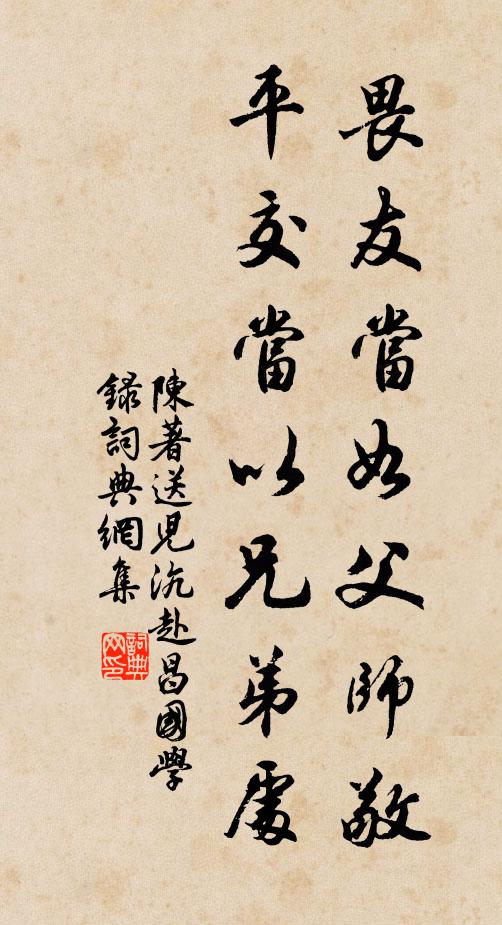 畏友當如父師敬
平交當以兄弟處
陳著送兒沆赴昌國學
錄詞典網集
詞典網印